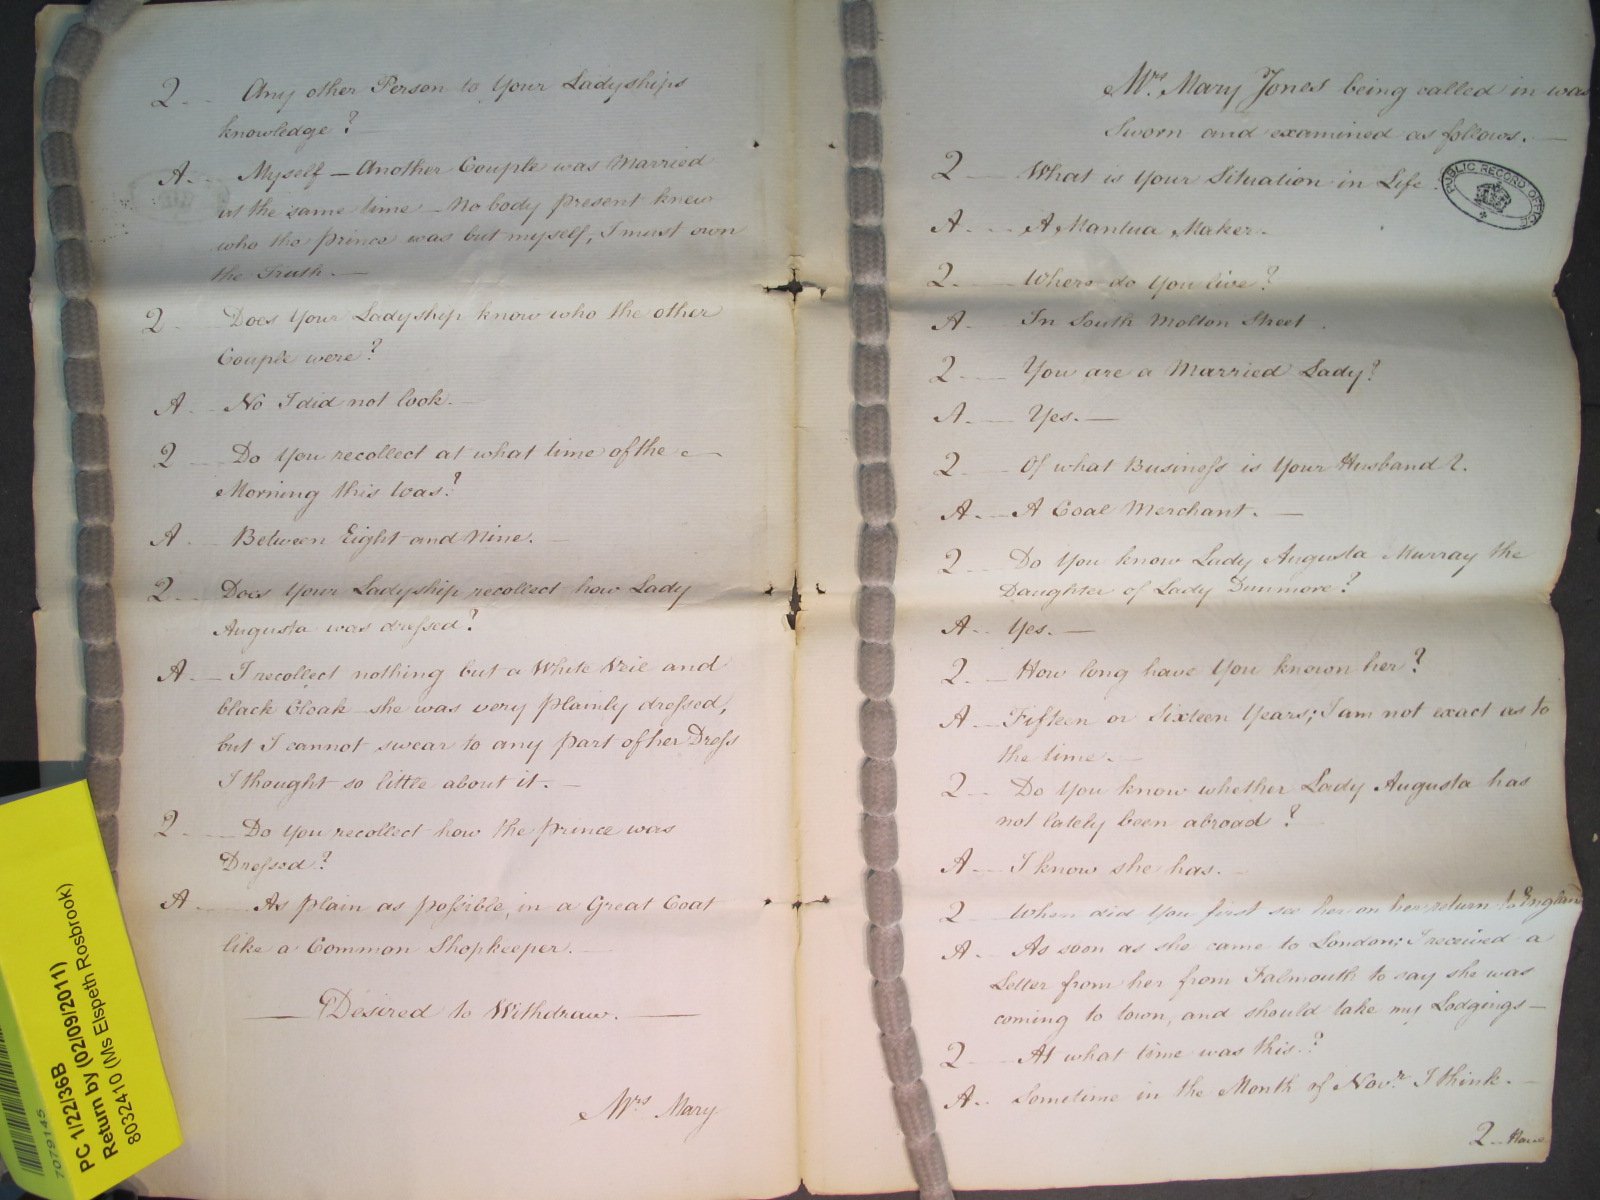 Q. Any other Person to Your Ladyships
knowledge? —
A. Myself — Another Couple was Married
at the same time — No body present knew
who the Prince was but myself, I must own
the Truth. —
Q. Does Your Ladyship know who the other
Couple were?
A. No I did not look. —
Q. Do You recollect at what time of the
Morning this was?
A. Between Eight and Nine. —
Q. Does Your Ladyship recollect how Lady
Augusta was dressed?
A. I recollect nothing but a White Veil and
black Cloak she was very plainly dressed,
but I cannot swear to any part of her Dress
I thought so little about it. —
Q. Do You recollect how the Prince was
Dressed?
A. As plain as possible, in a Great Coat
like a Common Shopkeeper. —
— Desired to Withdraw. —
Mrs Mary
Mrs. Mary Jones being called in was
Sworn and examined as follows. —
Q. What is Your Situation in Life
A. A Mantua Maker.
Q. Where do You live?
A. In South Molton Street.
Q. You are a Married Lady?
A. Yes. —
Q. Of what Business is Your Husband?
A. A Coal Merchant. —
Q. Do You know Lady Augusta Murray the
Daughter of Lady Dunmore?
A. Yes. —
Q. How long have You known her?
A. Fifteen or Sixteen Years; I am not exact as to
the time. —
Q. Do You know whether Lady Augusta has
not lately been abroad?
A. I know she has. —
Q. When did You first see her on her return to England
A. As soon as she came to London; I received a
Letter from her from Falmouth to say she was
coming to town, and should take my Lodgings —
Q. At what time was this?
A. Sometime in the Month of Novr. I think. —
Q. Have
PUBLIC RECORD OFFICE
7079145
PC 1/22/36B
Return by (02/09/2011)
8032410 (Ms Elspeth Rosbrook)